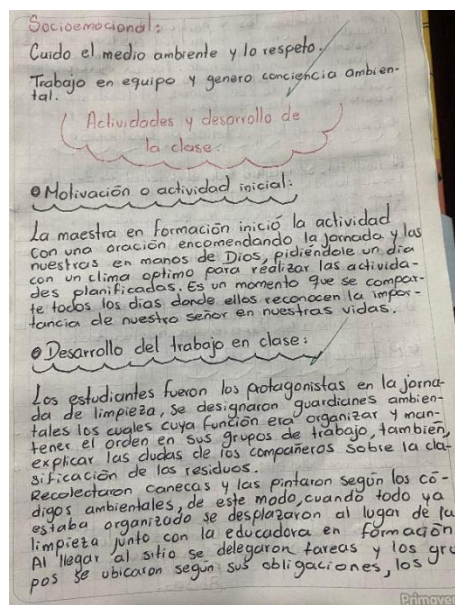 Socioemocional:
Cuido el medio ambiente y lo respeto.
Trabajo en equipo y genero conciencia ambien-
tal.
Actividades y desarrollo de
la clase.
Motivación o actividad inicial:
La maestra en formación inició la actividad
con una oración encomendando la jornada y las
nuestras en manos de Dios, pidiéndole un dia
con un clima optimo para realizar las activida-
des planificadas. Es un momento que se compar-
te todos los dias donde ellos reconocen la impor-
tancia de nuestro señor en nuestras vidas.
Desarrollo del trabajo en clase:
Los estudiantes fueron los protagonistas en la jorna-
da de limpieza, se designaron guardianes ambien-
tales los cuales cuya función era organizar y man-
tener el orden en sus grupos de trabajo, también,
explicar las dudas de los compañeros sobre la cla-
sificación de los residuos.
Recolectaron canecas y las pintaron según los có-
digos ambientales, de este modo, cuando todo ya
estaba organizado se desplazaron al lugar de la
limpieza junto con la educadora en formación
Al llegar al sitio se delegaron tareas y los gru
pos se ubicaron según sus obligaciones, los g
Primaver